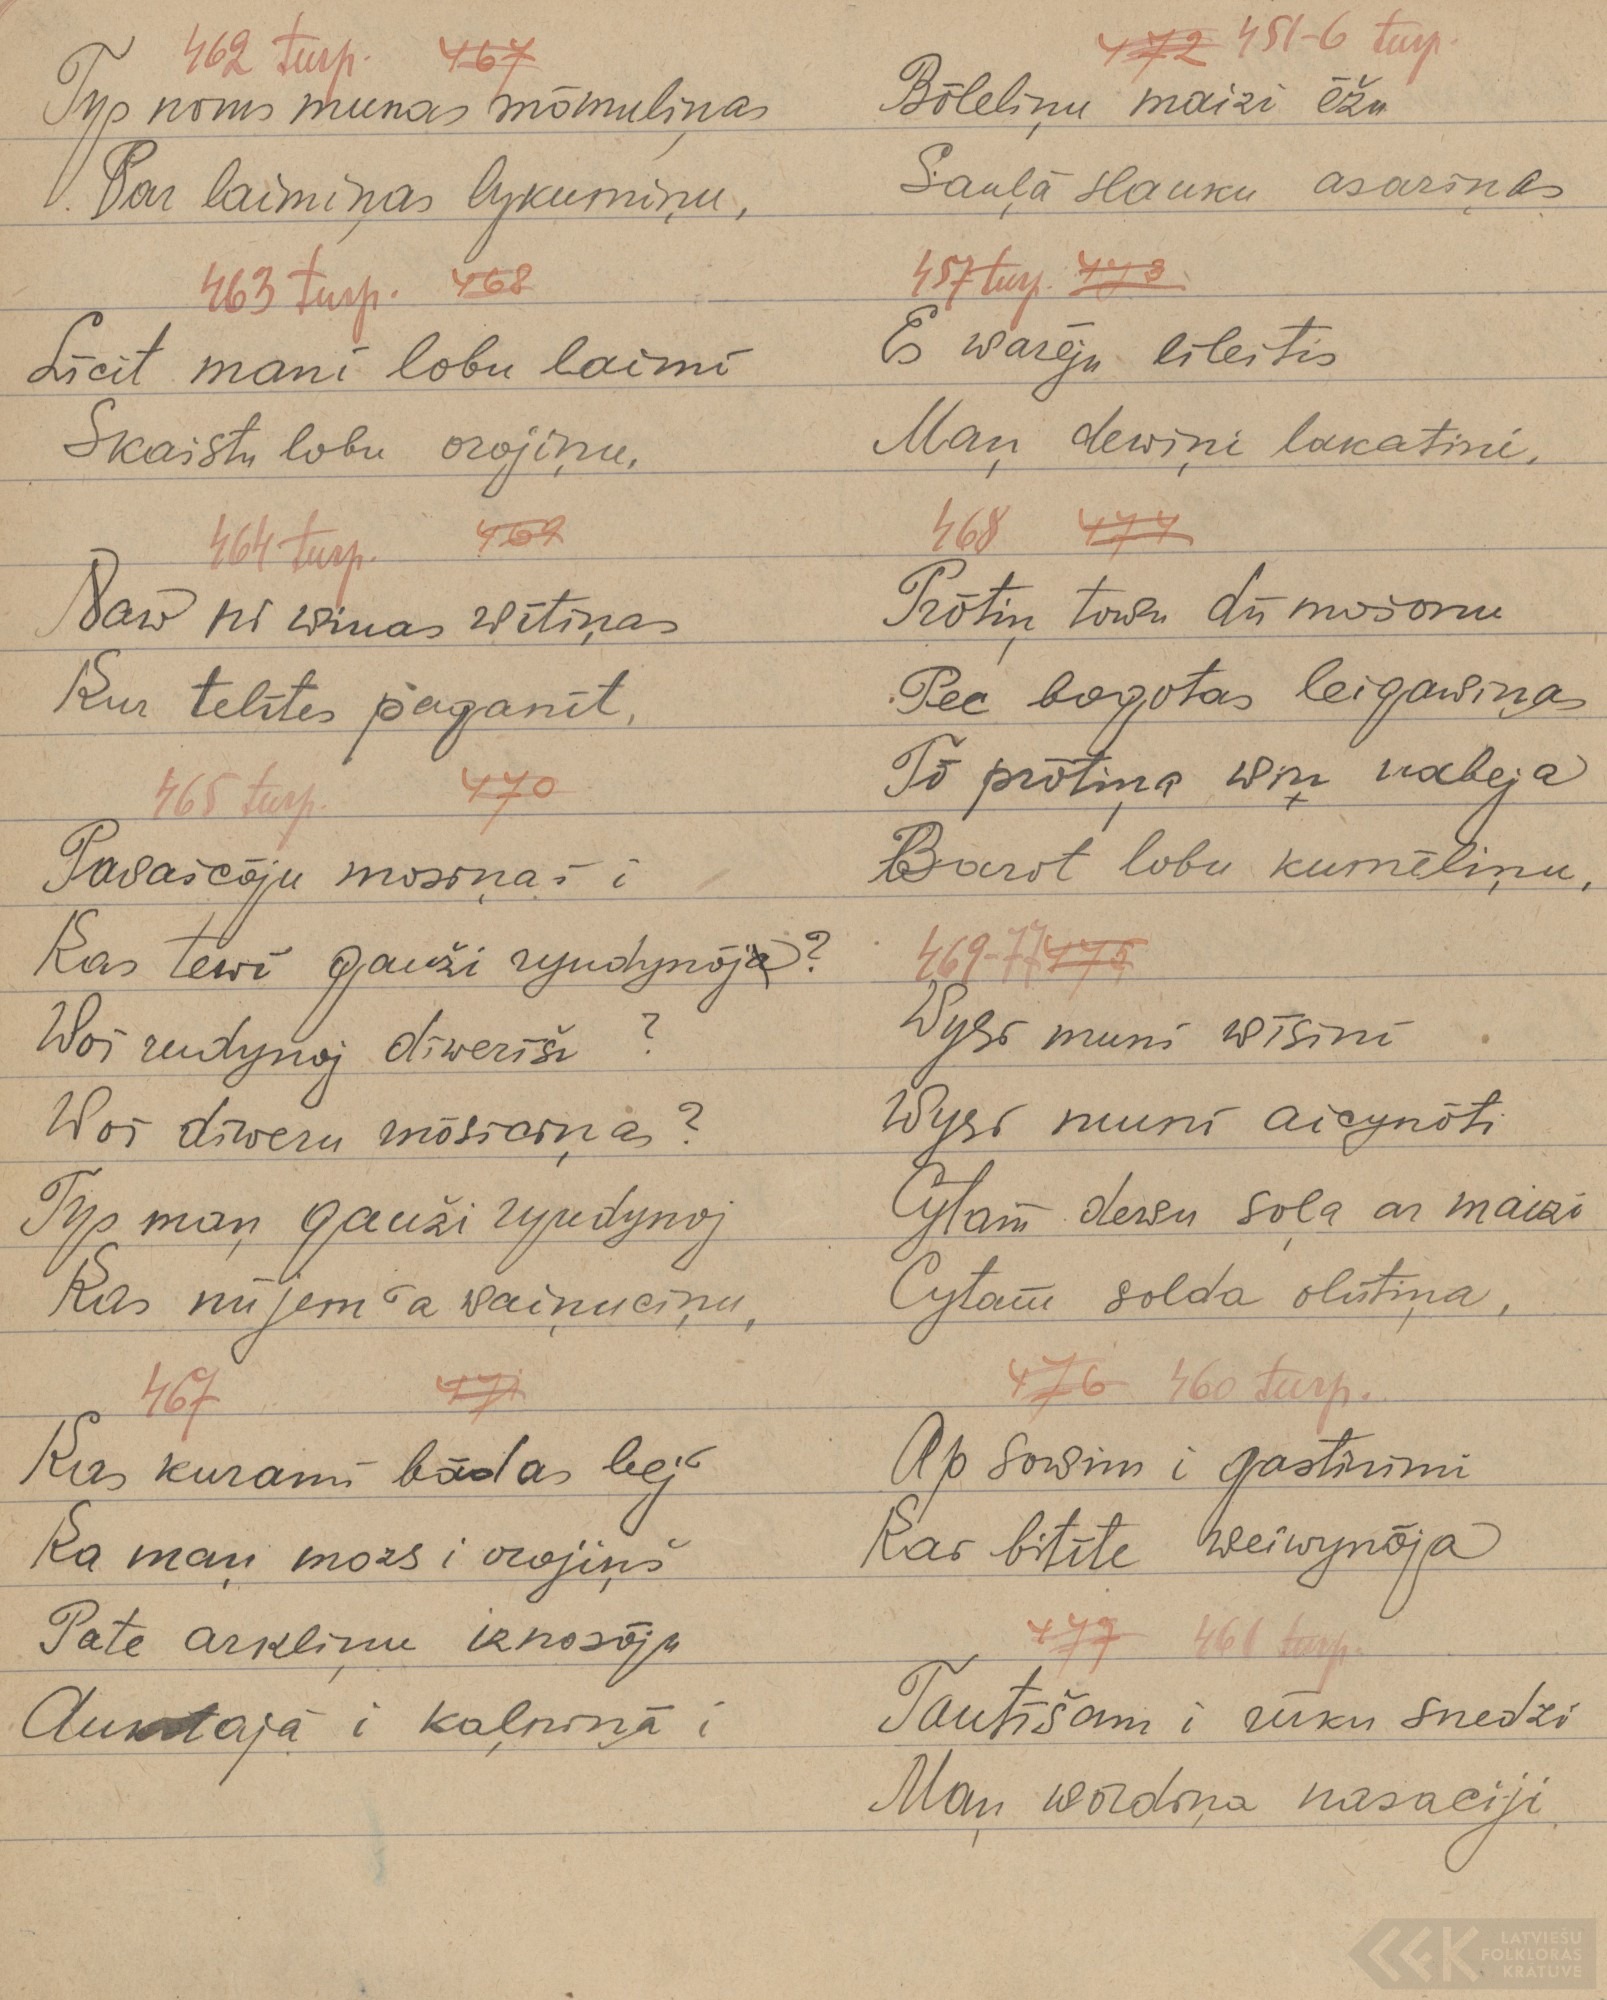 462 turp. 467
Typ noms munas mōmuliņas
Par laimiņas lykumiņu,
463 turp. 468
Līcit manī lobu laimī
Skaistu lobu orojiņu,
464 turp. 469
Naw ni winas wītiņas
Kur telītes paganīt,
465 turp. 470
Pavaicōju mosiņai i
Kas tewī gauži ryudynōja?
Woi rudynoj dīwerīši?
Woi dīweru mōsiciņas?
Typ maņ gauži ryudynoj
Kas nūjem a waiņuciņu,
467 471
Kas kuramī bādas bej
Ka maņi mozs i orojiņš
Pate arkliņu iznosōju
Auktajā i kaļniņā i
472 451-6 turp.
Bōleliņu maizi ēžu
Sauļā slauku asariņas
457 turp. 473
Es warēju līleitis
Maņ dewiņi lakatini,
468 474
Prōtiņ towu dū mosomu
Pec bogotas leigawiņas
Tō prōtiņa wiņ nabeja
Barot lobu kumēliņu,
469-77 475
Wysi muni wīsini
Wysi munī aicynōti
Cytam dewu soļa ar maizi
Cytam solda olūtiņa,
476 460 turp.
Ap sowim i gostinimi
Kai bitīte weiwynōja
477 461 turp.
Tautīšam i rūku snedzi
Maņ wōrdiņa nasaciji
LATVIEŠU
FOLKLORAS
KRĀTUVE